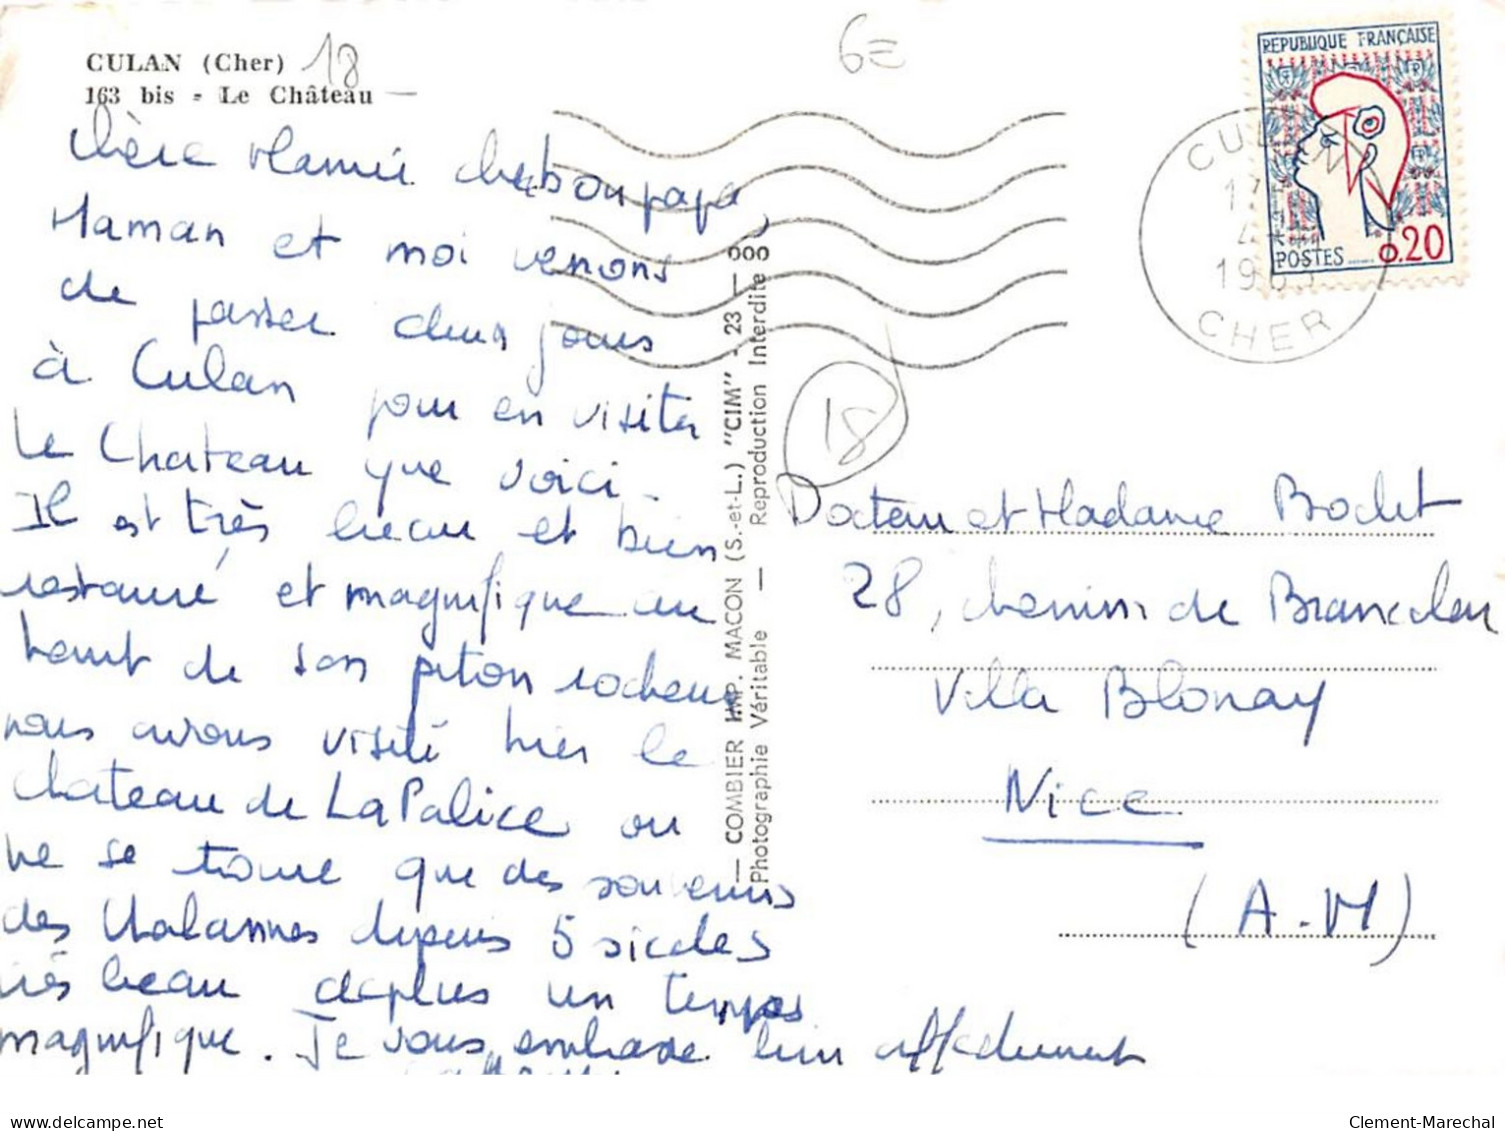 CULAN (Cher) 18
163 bis - Le Château
6€
Chère Mamie cher bonpapa,
Maman et moi venons
de passer deux jours
à Culan pour en visiter
le Chateau que voici.
Il est très beau et bien
restauré et magnifique au
haut de son piton rocheux
nous avons visité hier le
chateau de La Palice où
ne se trouve que des souvenirs
des Chabannes depuis 5 siècles
très beau de plus un temps
magnifique. Je vous embrasse bien affectueusement
— COMBIER IMP. MACON (S.-et-L.) "CIM" - 23 - 000
Photographie Véritable — Reproduction Interdite
18
REPUBLIQUE FRANÇAISE
POSTES 0.20
CHER
Docteur et Madame Bochet
28, chemin de Brancolar
Villa Blonay
Nice
(A.-M)
Clement-Marechal